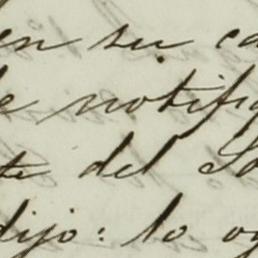 en su ca
e notific
te del Sa
dijo: lo o